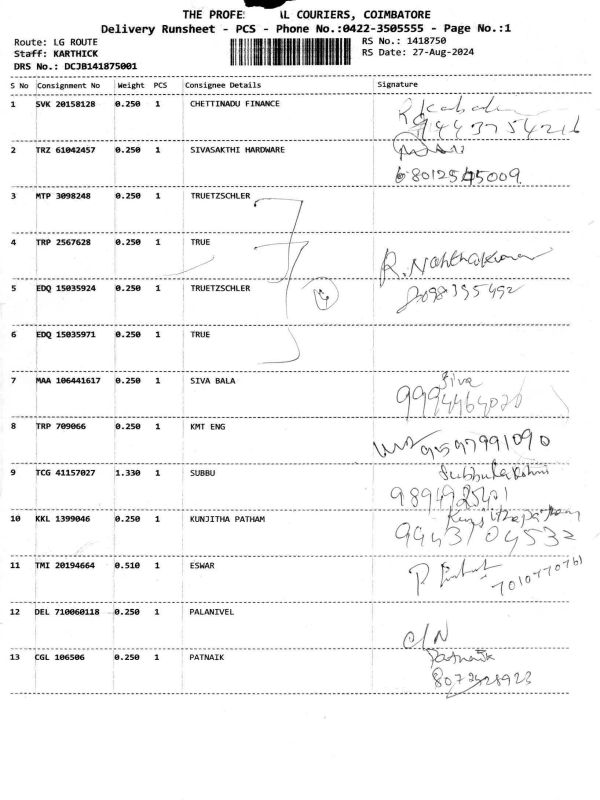 THE PROFE AL COURIERS, COIMBATORE
Delivery Runsheet - PCS - Phone No.:0422-3505555 - Page No.:1
Route: LG ROUTE RS No.: 1418750
Staff: KARTHICK RS Date: 27-Aug-2024
DRS No.: DCJB141875001
S No Consignment No Weight PCS Consignee Details Signature
1 SVK 20158128 0.250 1 CHETTINADU FINANCE
9443754216
2 TRZ 61042457 0.250 1 SIVASAKTHI HARDWARE
3 MTP 3098248 0.250 1 TRUETZSCHLER
4 TRP 2567628 0.250 1 TRUE
5 EDQ 15035924 0.250 1 TRUETZSCHLER
4
6 EDQ 15035971 0.250 1 TRUE
7 MAA 106441617 0.250 1 SIVA BALA Siva
9994464020
8 TRP 709066 0.250 1 KMT ENG
9597991090
9 TCG 41157027 1.330 1 SUBBU
9894925401
10 KKL 1399046 0.250 1 KUNJITHA PATHAM
9443704532
11 TMI 20194664 0.510 1 ESWAR
7010770761
12 DEL 710060118 0.250 1 PALANIVEL
C/N
13 CGL 106506 0.250 1 PATNAIK Patnaik